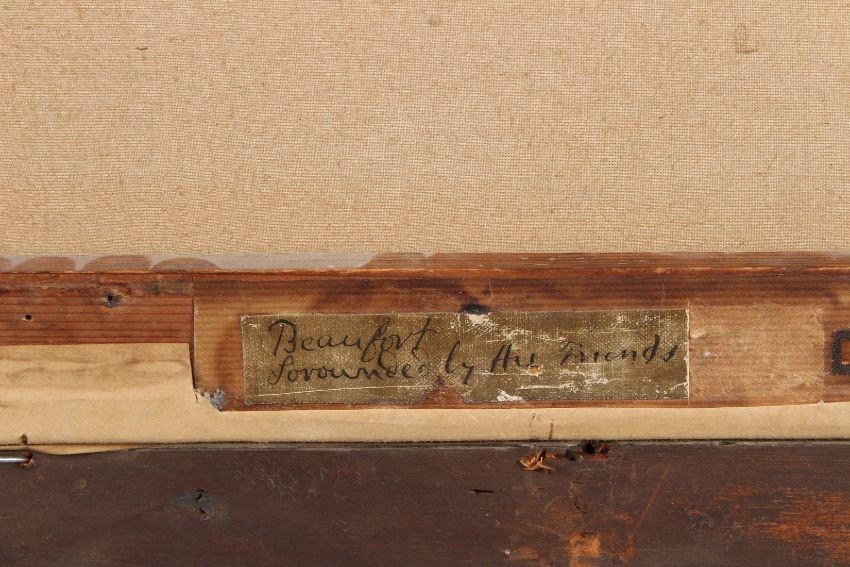 Beaufort
Sorounded by His Friends